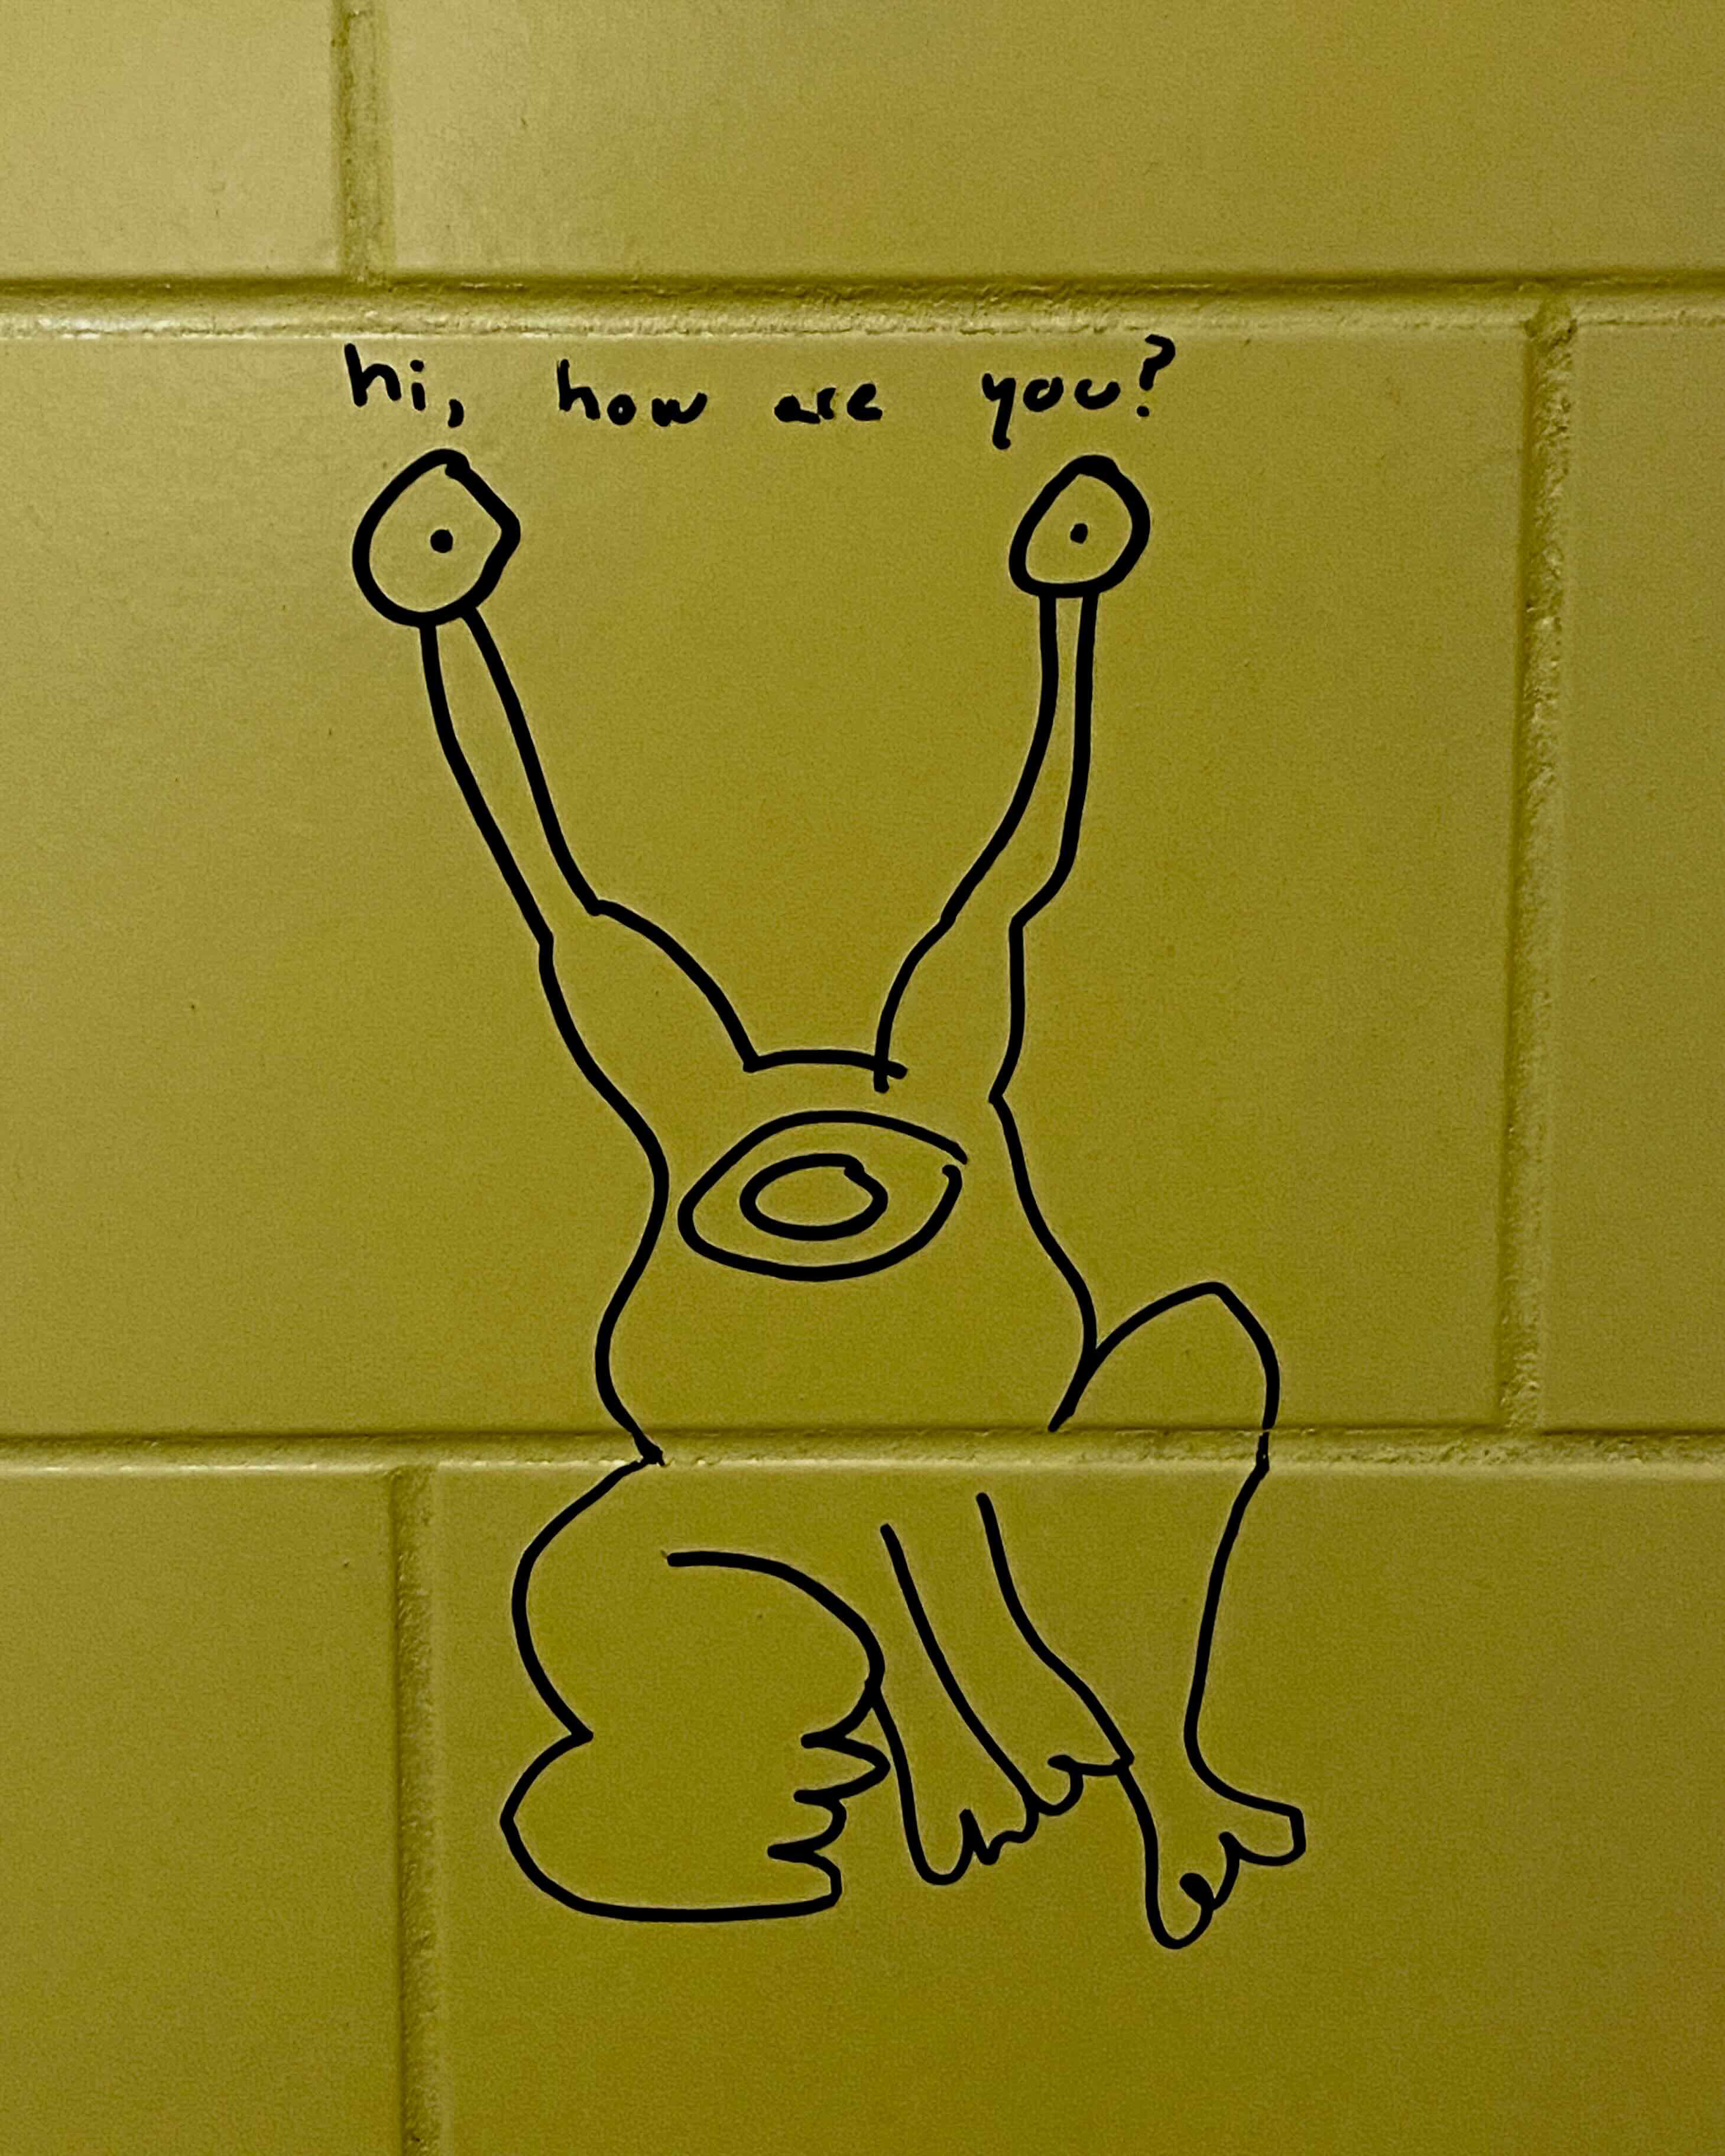 hi, how are you?